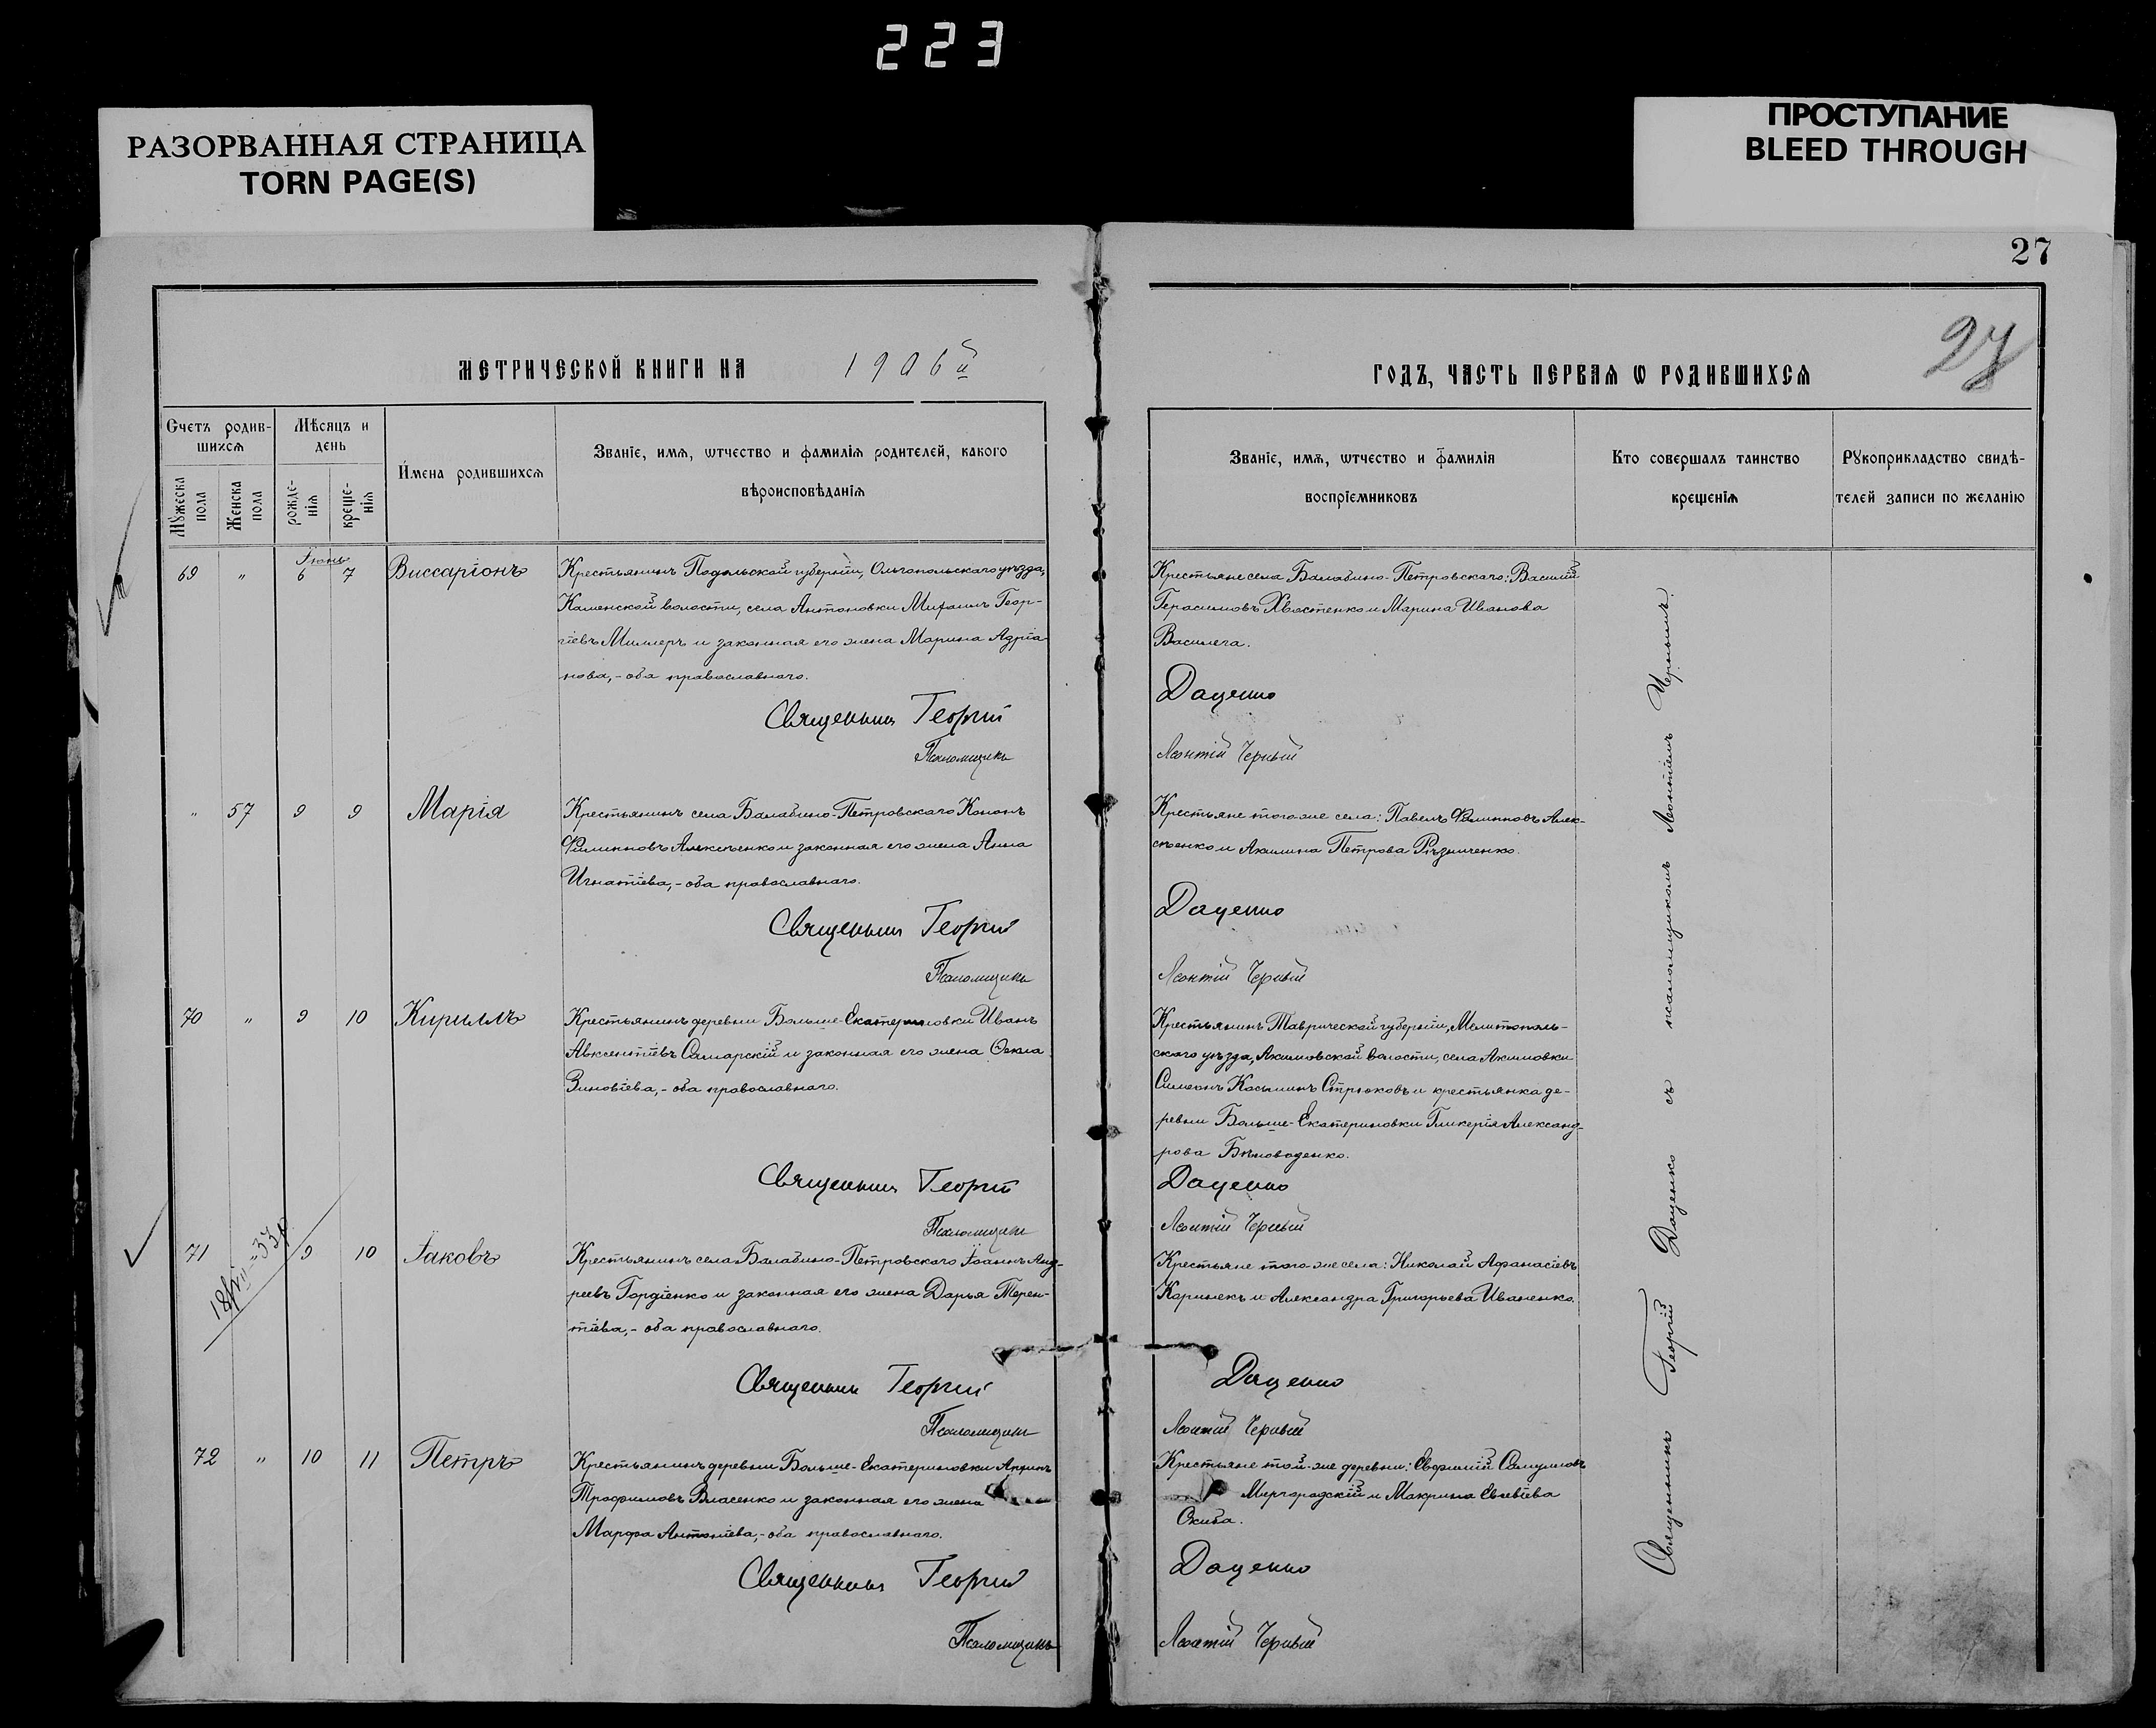 223
РАЗОРВАННАЯ СТРАНИЦА
TORN PAGE(S)
ПРОСТУПАНИЕ
BLEED THROUGH
27
27
МЕТРИЧЕСКОЙ КНИГИ НА 1906й
ГОДЪ, ЧАСТЬ ПЕРВАѦ Ѡ РОДИВШИХСѦ
Счетъ родив-
шихсѧ
Мѣсяцъ и
день
Мꙋжеска
пола
Женска
пола
рожде-
нїѧ
креще-
нїѧ
Имена родившихсѧ
Званїе, имѧ, ѡтчество и фамилїѧ родителей, какого
вѣроисповѣданїѧ
Званїе, имѧ, ѡтчество и фамилїѧ
воспрїемниковъ
Кто совершалъ таинство
крещенїѧ
Рꙋкоприкладство свидѣ-
телей записи по желанїю
Іюнь
69 " 6 7 Виссаріонъ
Крестьянинъ Подольской губерніи, Ольгопольскаго уѣзда,
Каменской волости, села Антоновки Михаилъ Геор-
гіевъ Миллеръ и законная его жена Марина Адріа-
нова, - оба православнаго.
Священникъ Георгій
Псаломщикъ
Крестьяне села Балабино-Петровскаго: Василій
Герасимовъ Хвостенко и Марина Иванова
Василега.
Даценко
Леонтій Черный
" 57 9 9 Марія
Крестьянинъ села Балабино-Петровскаго Кононъ
Филипповъ Алексѣенко и законная его жена Анна
Игнатіева, - оба православнаго.
Священникъ Георгій
Псаломщикъ
Крестьяне того же села: Павелъ Филипповъ Алек-
сѣенко и Акилина Петрова Рѣзниченко.
Даценко
Леонтій Черный
70 " 9 10 Кириллъ
Крестьянинъ деревни Больше-Екатериновки Иванъ
Авксентіевъ Самарскій и законная его жена Ѳекла
Зиновіева, - оба православнаго.
Священникъ Георгій
Псаломщикъ
Крестьянинъ Таврической губерніи, Мелитополь-
скаго уѣзда, Акимовской волости, села Акимовки
Симеонъ Косьминъ Стрюковъ и крестьянка де-
ревни Больше-Екатериновки Гликерія Александ-
рова Бѣловоденко.
Даценко
Леонтій Черный
71 " 9 10 Іаковъ
Крестьянинъ села Балабино-Петровскаго Іоаннъ Анд-
реевъ Гордіенко и законная его жена Дарья Терен-
тіева, - оба православнаго.
Священникъ Георгій
Псаломщикъ
Крестьяне того-же села: Николай Афанасіевъ
и Александра Григорьева Иваненко.
Даценко
Леонтій Черный
72 " 10 11 Петръ
Крестьянинъ деревни Больше-Екатериновки
Трофимовъ Власенко и законная его жена
Марфа Антоніева, - оба православнаго.
Священникъ Георгій
Псаломщикъ
Крестьяне той-же деревни: Евфимій
Миргородскій и Макрина
Скиба.
Даценко
Леонтій Черный
Священникъ Георгій Даценко съ псаломщикомъ Леонтіемъ Чернымъ.